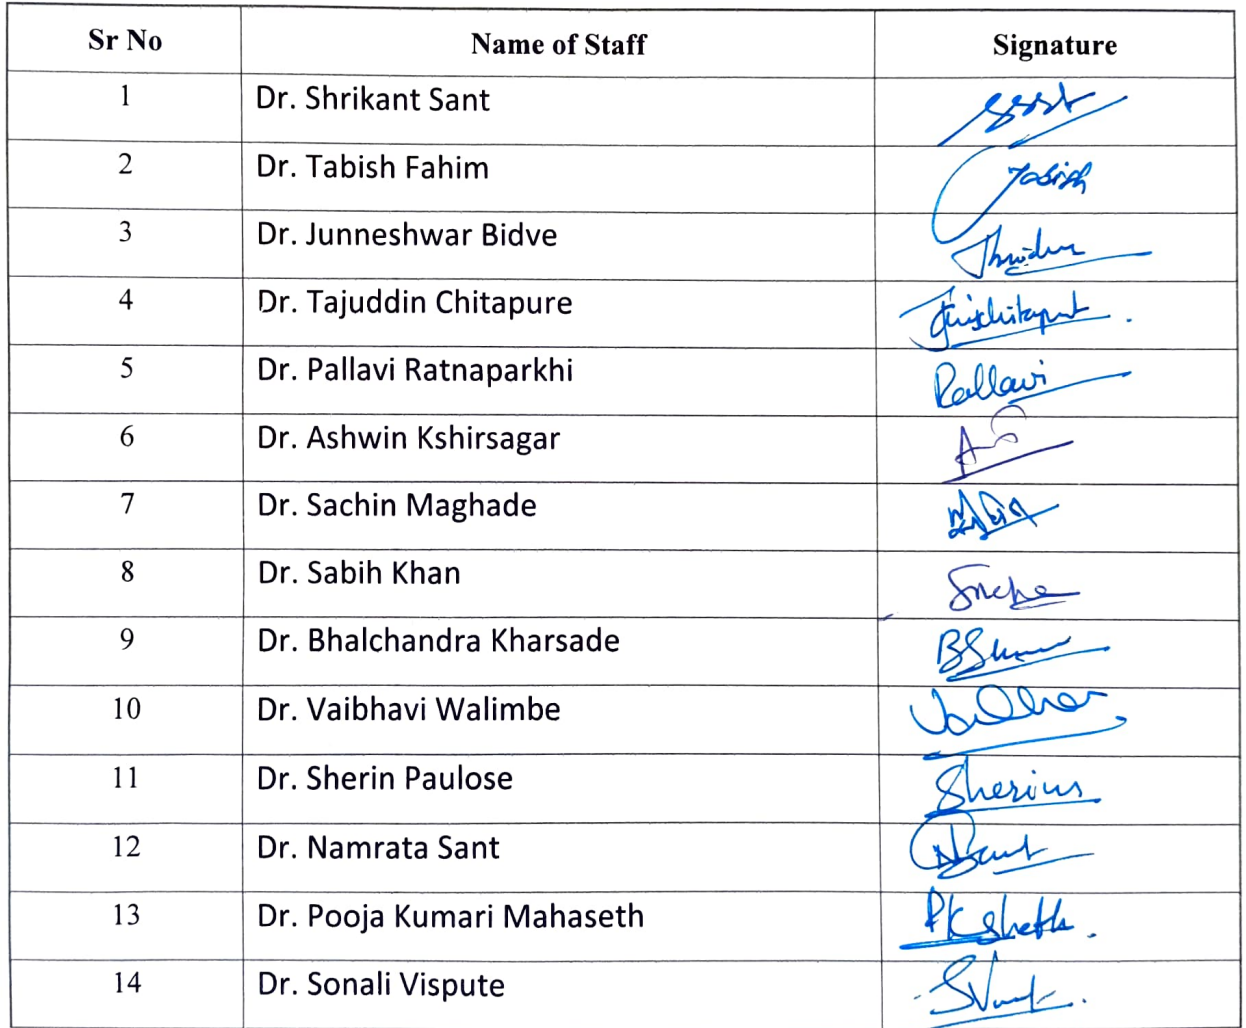 Sr No Name of Staff Signature
1 Dr. Shrikant Sant
2 Dr. Tabish Fahim Tabish
3 Dr. Junneshwar Bidve
4 Dr. Tajuddin Chitapure
5 Dr. Pallavi Ratnaparkhi Pallavi
6 Dr. Ashwin Kshirsagar
7 Dr. Sachin Maghade
8 Dr. Sabih Khan
9 Dr. Bhalchandra Kharsade
10 Dr. Vaibhavi Walimbe
11 Dr. Sherin Paulose
12 Dr. Namrata Sant
13 Dr. Pooja Kumari Mahaseth
14 Dr. Sonali Vispute